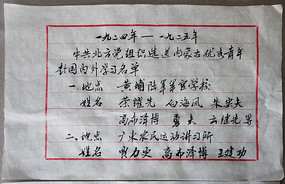 一九二四年——一九二五年
中共北方党组织选送内蒙古优秀青年
赴国内外学习名单
一、地点 黄埔陆军军官学校
姓名 荣耀先 白海风 朱实夫
高布泽博 勇夫 云继先等
二、地点 广东农民运动讲习所
姓名 贾力更 高布泽博 王建功